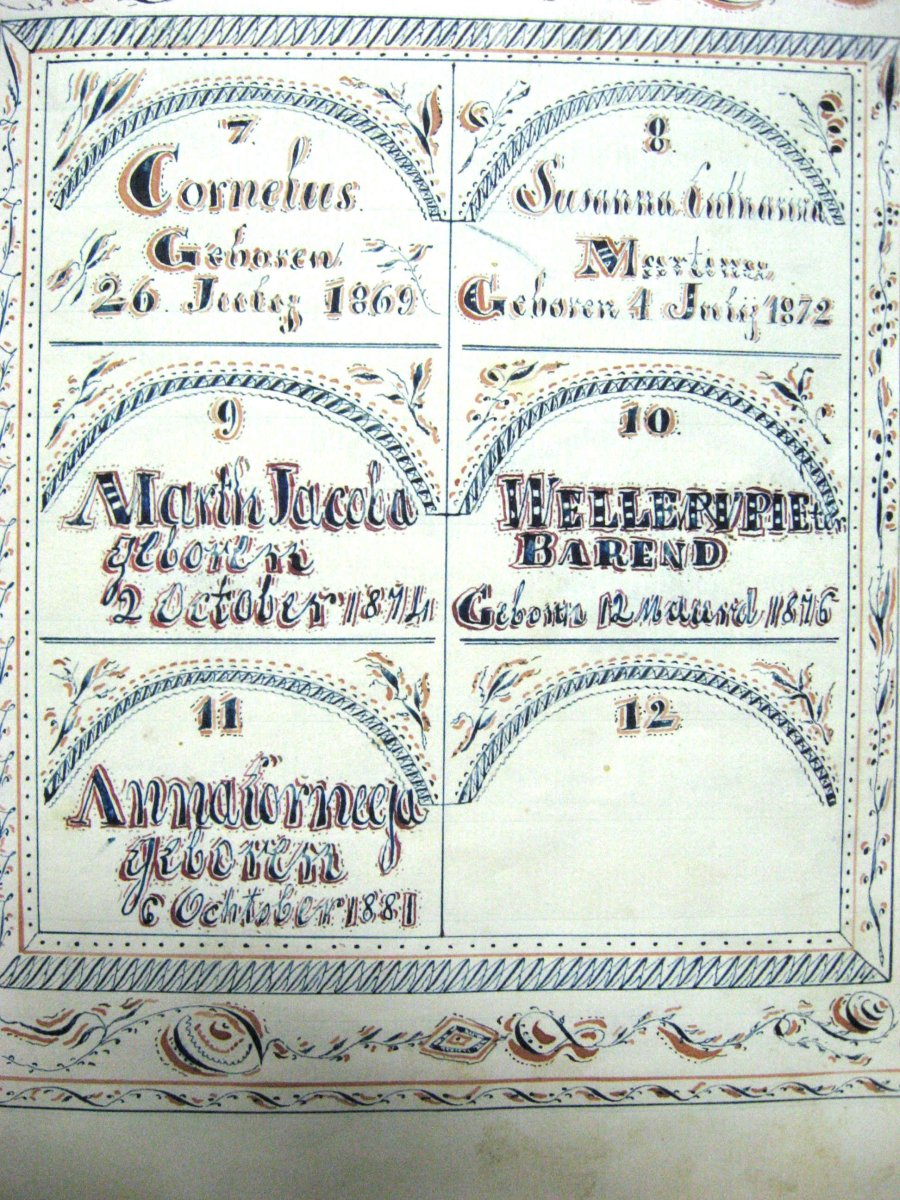 7.
Cornelius
Geboren
26 Juley 1869
8
Susanna Catharina
Martina
Geboren 1 July 1872
9
Marth Jacoba
geboren
2 October 1874
10.
WELLEM PIEter
BAREND
Geboren 12 Maurd 1876
11
Anna Corneeja
geboren
6 Ochtober 1881
12